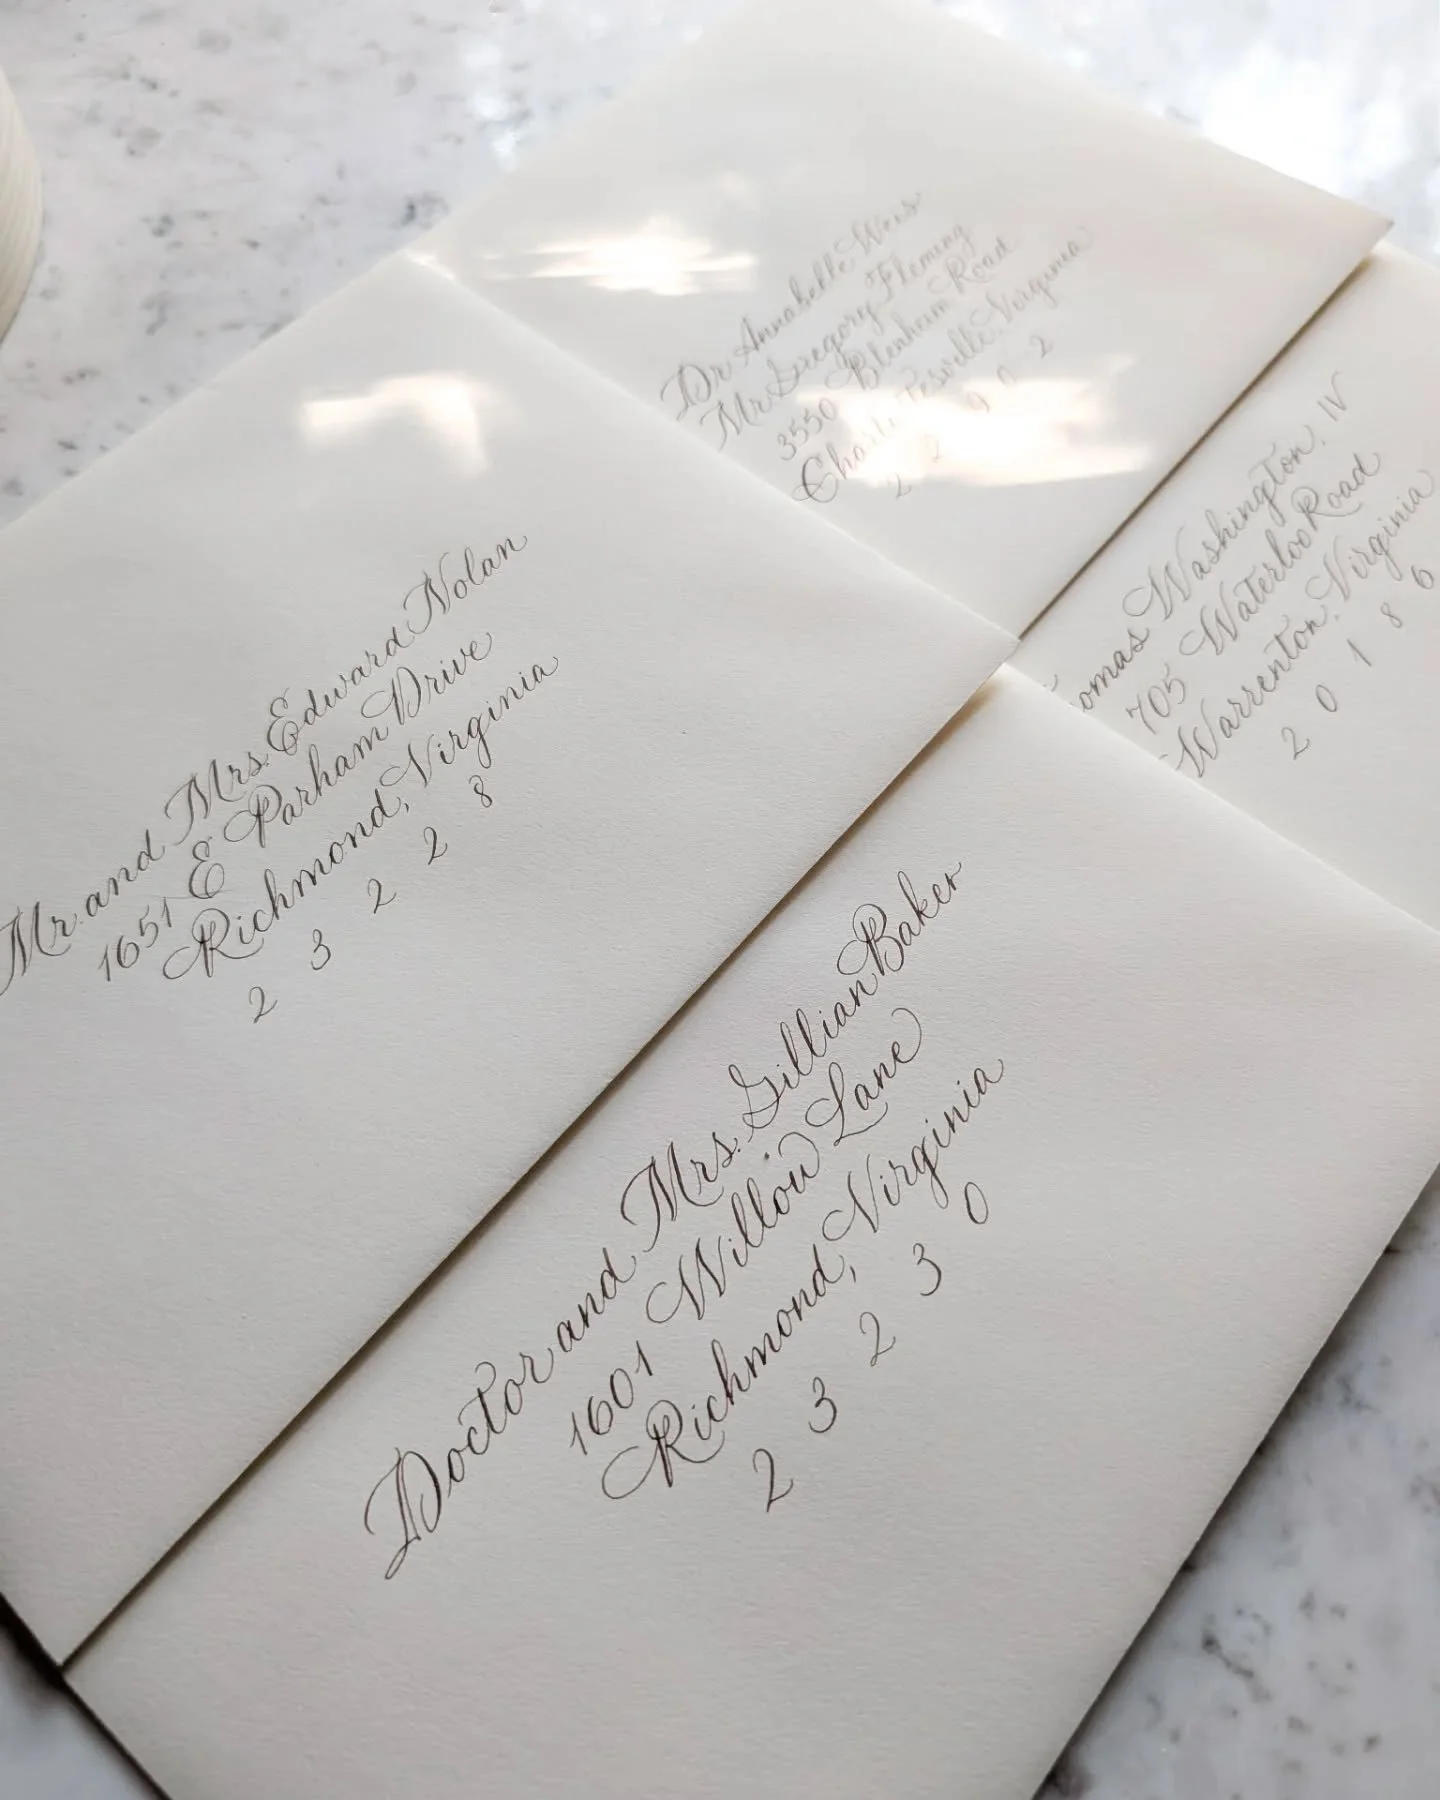 Dr Annabelle Weis
Mr Gregory Fleming
3550 Blenheim Road
Charlottesville, Virginia
2 2 9 0 2
Thomas Washington, IV
705 Waterloo Road
Warrenton, Virginia
2 0 1 8 6
Mr. and Mrs. Edward Nolan
1651 E Parham Drive
Richmond, Virginia
2 3 2 2 8
Doctor and Mrs. Gillian Baker
1601 Willow Lane
Richmond, Virginia
2 3 2 3 0